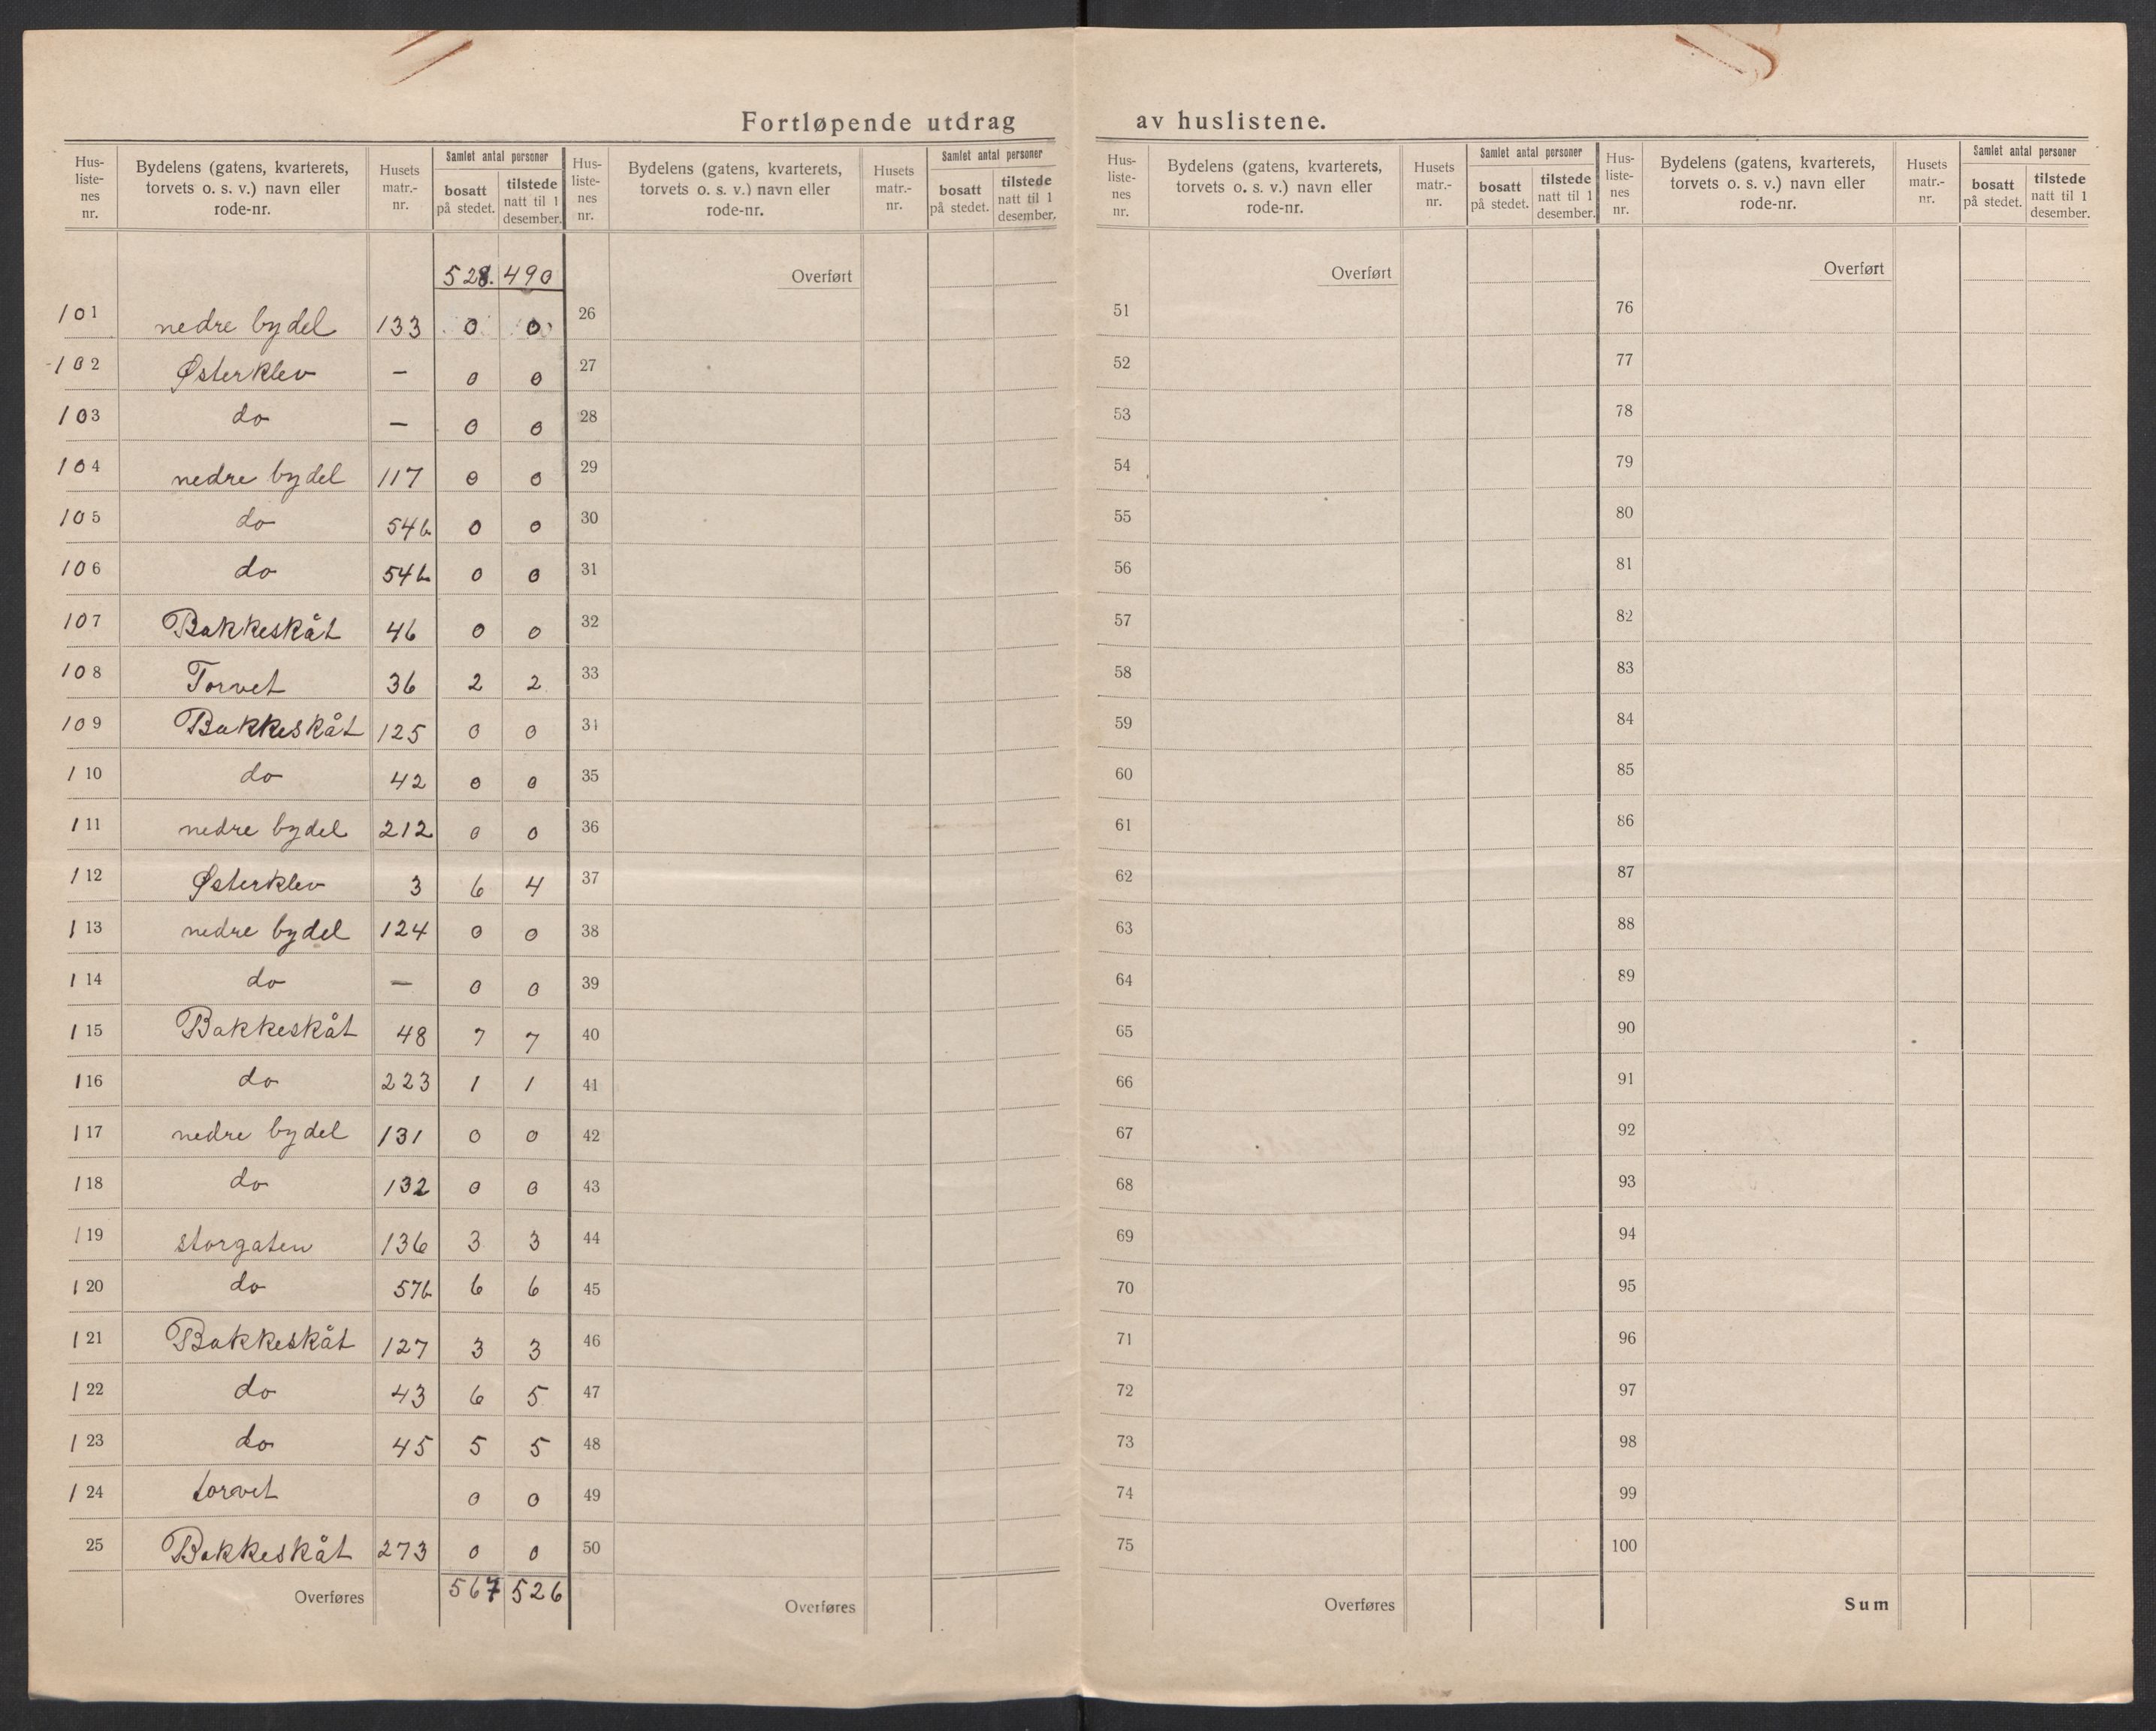 Fortløpende utdrag av huslistene.
Hus-liste-nes nr. | Bydelens (gatens, kvarterets, torvets o. s. v.) navn eller rode-nr. | Husets matr.-nr. | Samlet antal personer bosatt på stedet. | tilstede natt til 1 desember.
528. 490
101 nedre bydel 133 0 0
102 Østerklev — 0 0
103 do — 0 0
104 nedre bydel 117 0 0
105 do 54b 0 0
106 do 54b 0 0
107 Bakkeskåt 46 0 0
108 Torvet 36 2 2
109 Bakkeskåt 125 0 0
110 do 42 0 0
111 nedre bydel 212 0 0
112 Østerklev 3 6 4
113 nedre bydel 124 0 0
114 do — 0 0
115 Bakkeskåt 48 7 7
116 do 223 1 1
117 nedre bydel 131 0 0
118 do 132 0 0
119 storgaten 136 3 3
120 do 57b 6 6
121 Bakkeskåt 127 3 3
122 do 43 6 5
123 do 45 5 5
124 torvet 0 0
25 Bakkeskåt 273 0 0
Overføres 567 526
Hus-liste-nes nr. | Bydelens (gatens, kvarterets, torvets o. s. v.) navn eller rode-nr. | Husets matr.-nr. | Samlet antal personer bosatt på stedet. | tilstede natt til 1 desember.
Overført
26
27
28
29
30
31
32
33
34
35
36
37
38
39
40
41
42
43
44
45
46
47
48
49
50
Overføres
Hus-liste-nes nr. | Bydelens (gatens, kvarterets, torvets o. s. v.) navn eller rode-nr. | Husets matr.-nr. | Samlet antal personer bosatt på stedet. | tilstede natt til 1 desember.
Overført
51
52
53
54
55
56
57
58
59
60
61
62
63
64
65
66
67
68
69
70
71
72
73
74
75
Overføres
Hus-liste-nes nr. | Bydelens (gatens, kvarterets, torvets o. s. v.) navn eller rode-nr. | Husets matr.-nr. | Samlet antal personer bosatt på stedet. | tilstede natt til 1 desember.
Overført
76
77
78
79
80
81
82
83
84
85
86
87
88
89
90
91
92
93
94
95
96
97
98
99
100
Sum